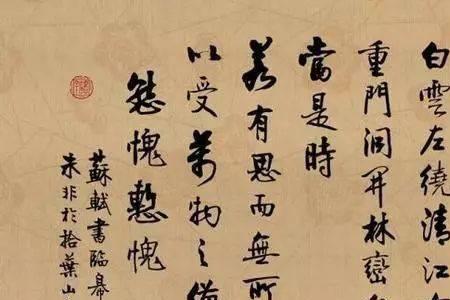 白雲左繞清江
重門洞開林巒
當是時
若有思而無所
以受萬物之備
慙愧慙愧
蘇軾書臨皋
朱非於拾葉山